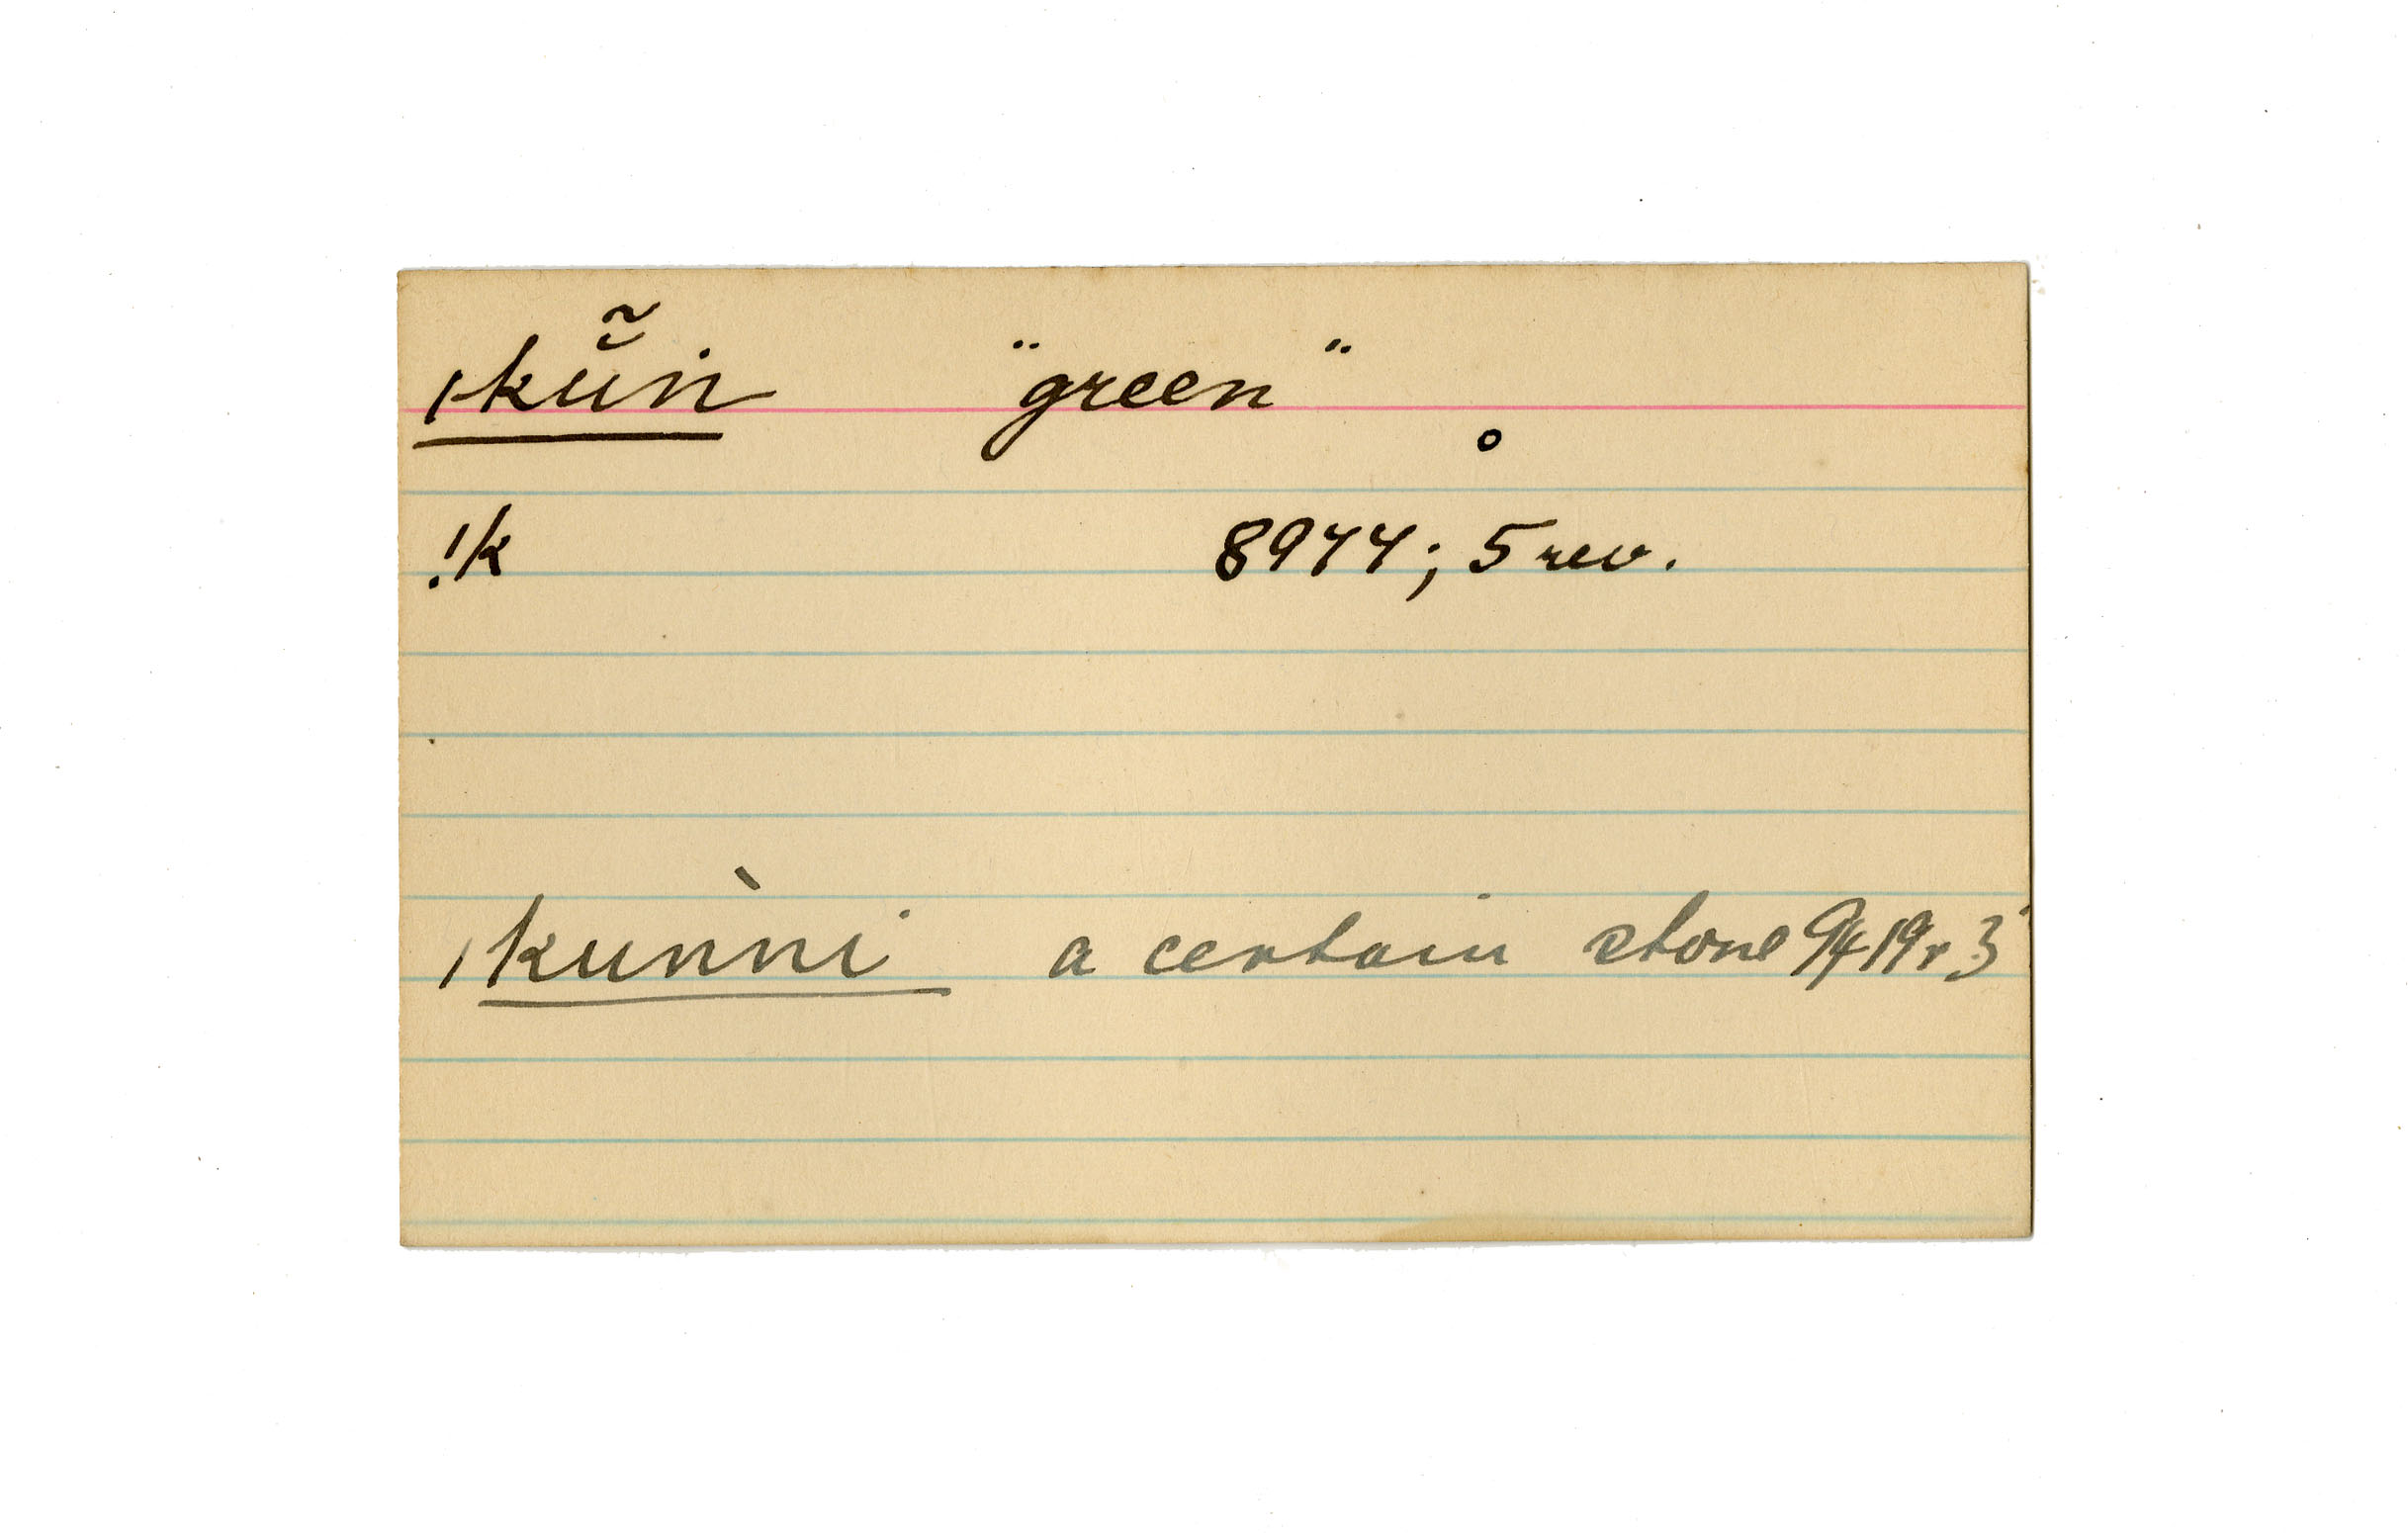 ǀkŭ̃in "green"
°
!k 8944; 5 rev.
ǀkun̍ni a certain stone 9419r.3'